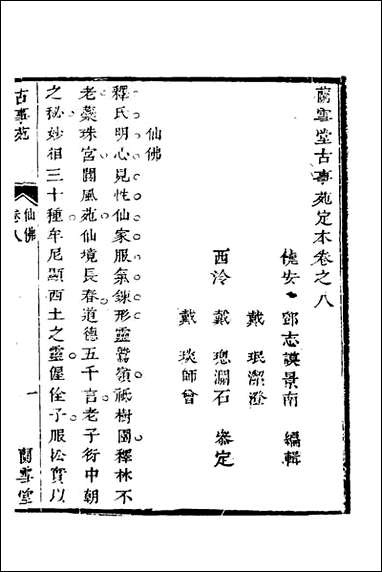 蘭雪堂古事苑定本卷之八
饒安 鄧志謨景南 編輯
戴 珉潔澄
西泠 戴 璁瀾石 叅定
戴 琰師曾
仙佛
釋氏明心見性仙家服氣鍊形靈鷲嶺祗樹園釋林不
老蘂珠宮閬風苑仙境長春道德五千言老子衍中朝
之秘妙相三十種牟尼顯西土之靈偓佺子服松實以
古事苑
仙佛
卷八
一
蘭雪堂